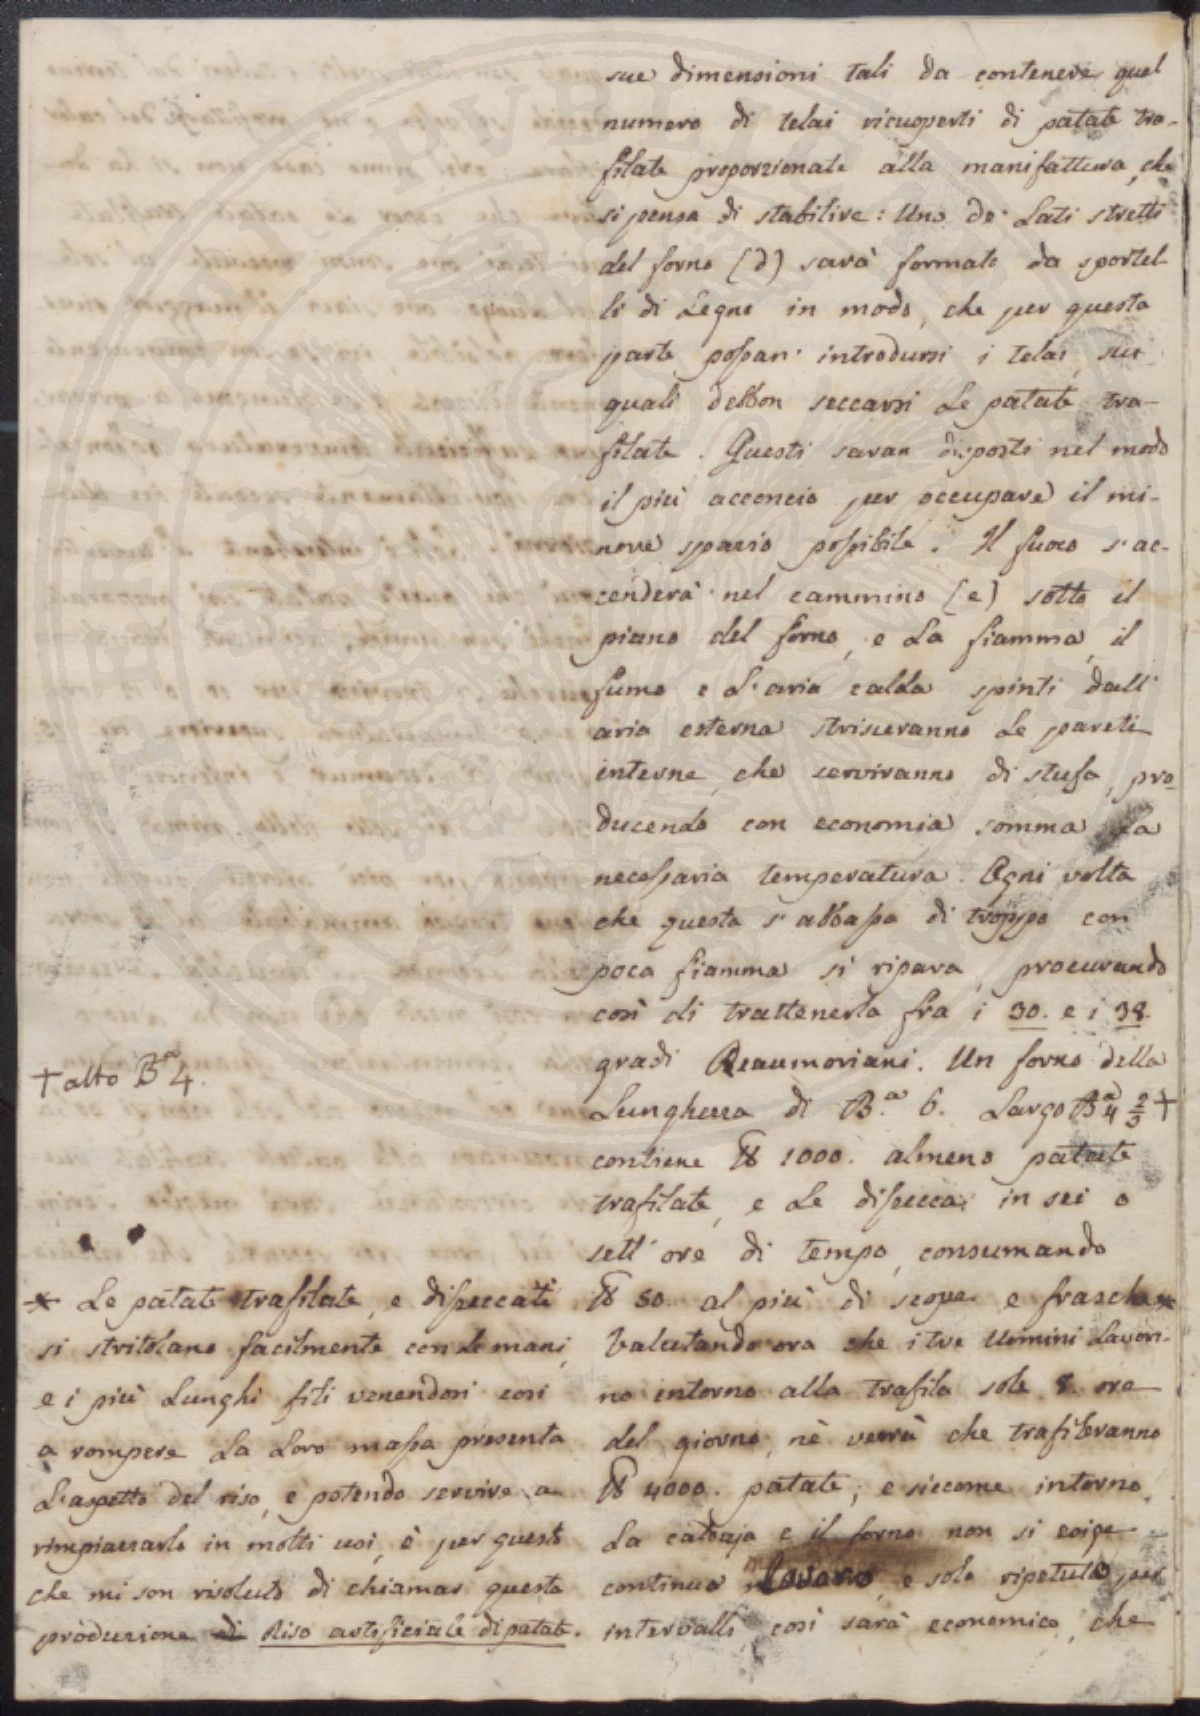 sue dimensioni tali da contenere quel
numero di telai ricuoperti di patate tra-
filate proporzionale alla manifattura, che
si pensa di stabilire: Uno de' Lati stretti
del forno (d) sarà formato da sportel-
li di Legno in modo, che per questa
parte possan' introdursi i telai, su i
quali debbon seccarsi Le patate tra-
filate. Questi saran disposti nel modo
il più acconcio per occupare il mi-
nore spazio possibile. Il fuoco s'ac-
cenderà nel cammino (e) sotto il
piano del forno, e La fiamma, il
fumo e L'aria calda spinti dall'
aria esterna strisceranno Le pareti
interne, che serviranno di stufa, pro-
ducendo con economia somma La
necessaria temperatura. Ogni volta
che questa s'abbassa di troppo con
poca fiamma si ripara, procurando
così di trattenerla fra i 30. e i 38.
gradi Reaumoriani. Un forno della
Lunghezza di B.a 6. Largo B.a 4 2/3 +
contiene ℔ 1000. almeno patate
trafilate, e Le dissecca in sei o
sett' ore di tempo, consumando
℔ 50. al più di scope e frasche *
Valutando ora che i tre Uomini Lavori-
no intorno alla trafila sole 8. ore
del giorno, nè verrà che trafileranno
℔ 4000. patate; e siccome intorno
La caldaja e il forno non si esige
continuo Lavoro, e solo ripetuto per
intervalli, così sarà economico, che
+ alto B.a 4.
* Le patate trafilate, e disseccate
si stritolano facilmente con le mani,
e i più Lunghi fili venendosi così
a rompere La Loro massa presenta
L'aspetto del riso, e potendo servire a
rimpiazzarlo in molti usi, è per questo
che mi son risoluto di chiamar questa
produzione di Riso artificiale di patate.